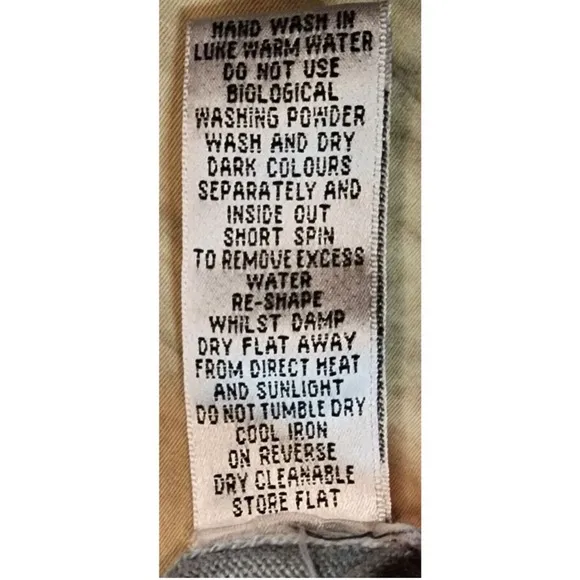 HAND WASH IN
LUKE WARM WATER
DO NOT USE
BIOLOGICAL
WASHING POWDER
WASH AND DRY
DARK COLOURS
SEPARATELY AND
INSIDE OUT
SHORT SPIN
TO REMOVE EXCESS
WATER
RE-SHAPE
WHILST DAMP
DRY FLAT AWAY
FROM DIRECT HEAT
AND SUNLIGHT
DO NOT TUMBLE DRY
COOL IRON
ON REVERSE
DRY CLEANABLE
STORE FLAT